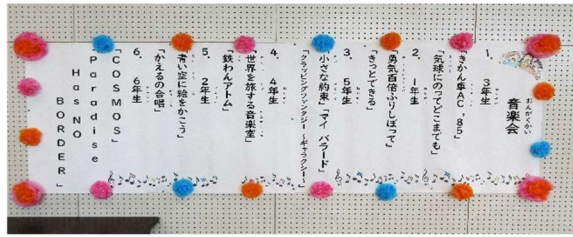 おんがくかい
音楽会
1. 3年生
「きかん車AC'85」
「気球にのってどこまでも」
2. 1年生
「勇気百倍ふりしぼって」
「きっとできる」
3. 5年生
「小さな約束」「マイ バラード」
「クラッピングファンタジー ~ギャラクシー~」
4. 4年生
「世界を旅する音楽室」
「鉄わんアトム」
5. 2年生
「青い空に絵をかこう」
「かえるの合唱」
6. 6年生
「COSMOS」
「Paradise
Has NO
BORDER」